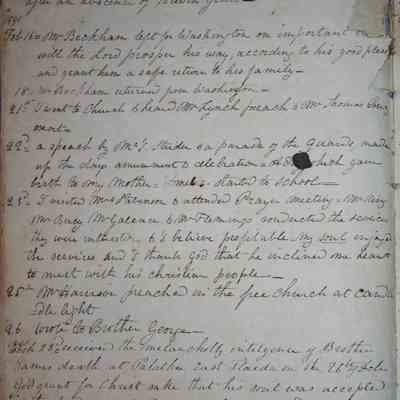 after an absence of
Feb 16 Mr Beckham left for Washington on important
will the Lord prosper his way, according to his good
and grant him a safe return to his family
18. Mr Beckham returned from Washington
21st I went to Church & heard Mr Lynch preach & Mr Thomas
ment
22d a speech by Mr J. & a parade of the Guards made
up the days amusement & celebration which gave
birth to my Mother. started to school
23d I visited Mrs & attended Prayer Meeting. Mr
Mr Mr & Mr Flemings conducted the services
they were interesting & I believe profitable my soul enjoyed
the services and I thank God that he inclined me heart
to meet with his christian people
25th Mr Harrison preached in the free church at cand
dle light
26 wrote to Brother George
28 received the melancholly inteligence of Brother
James death at Palatka East Florida on the 21st of
God grant for Christ sake that his soul was accepted